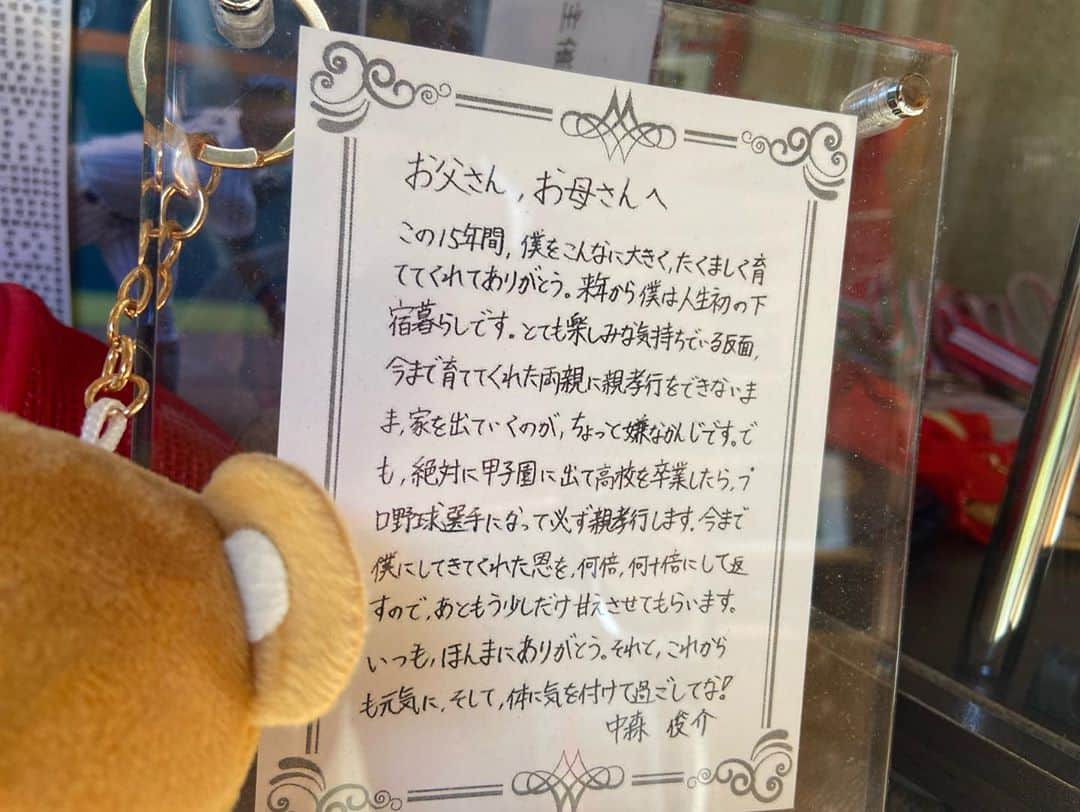 お父さん,お母さんへ
この15年間,僕をこんなに大きく,たくましく育
ててくれてありがとう。来年から僕は人生初の下
宿暮らしです。とても楽しみな気持ちでいる反面,
今まで育ててくれた両親に親孝行をできないま
ま,家を出ていくのが,ちょっと嫌なかんじです。で
も,絶対に甲子園に出て高校を卒業したら,プ
ロ野球選手になって必ず親孝行します。今まで
僕にしてきてくれた恩を,何倍,何十倍にして返
すので,あともう少しだけ甘えさせてもらいます。
いつも,ほんまにありがとう。それと,これから
も元気に,そして,体に気を付けて過ごしてな!
中森 俊介